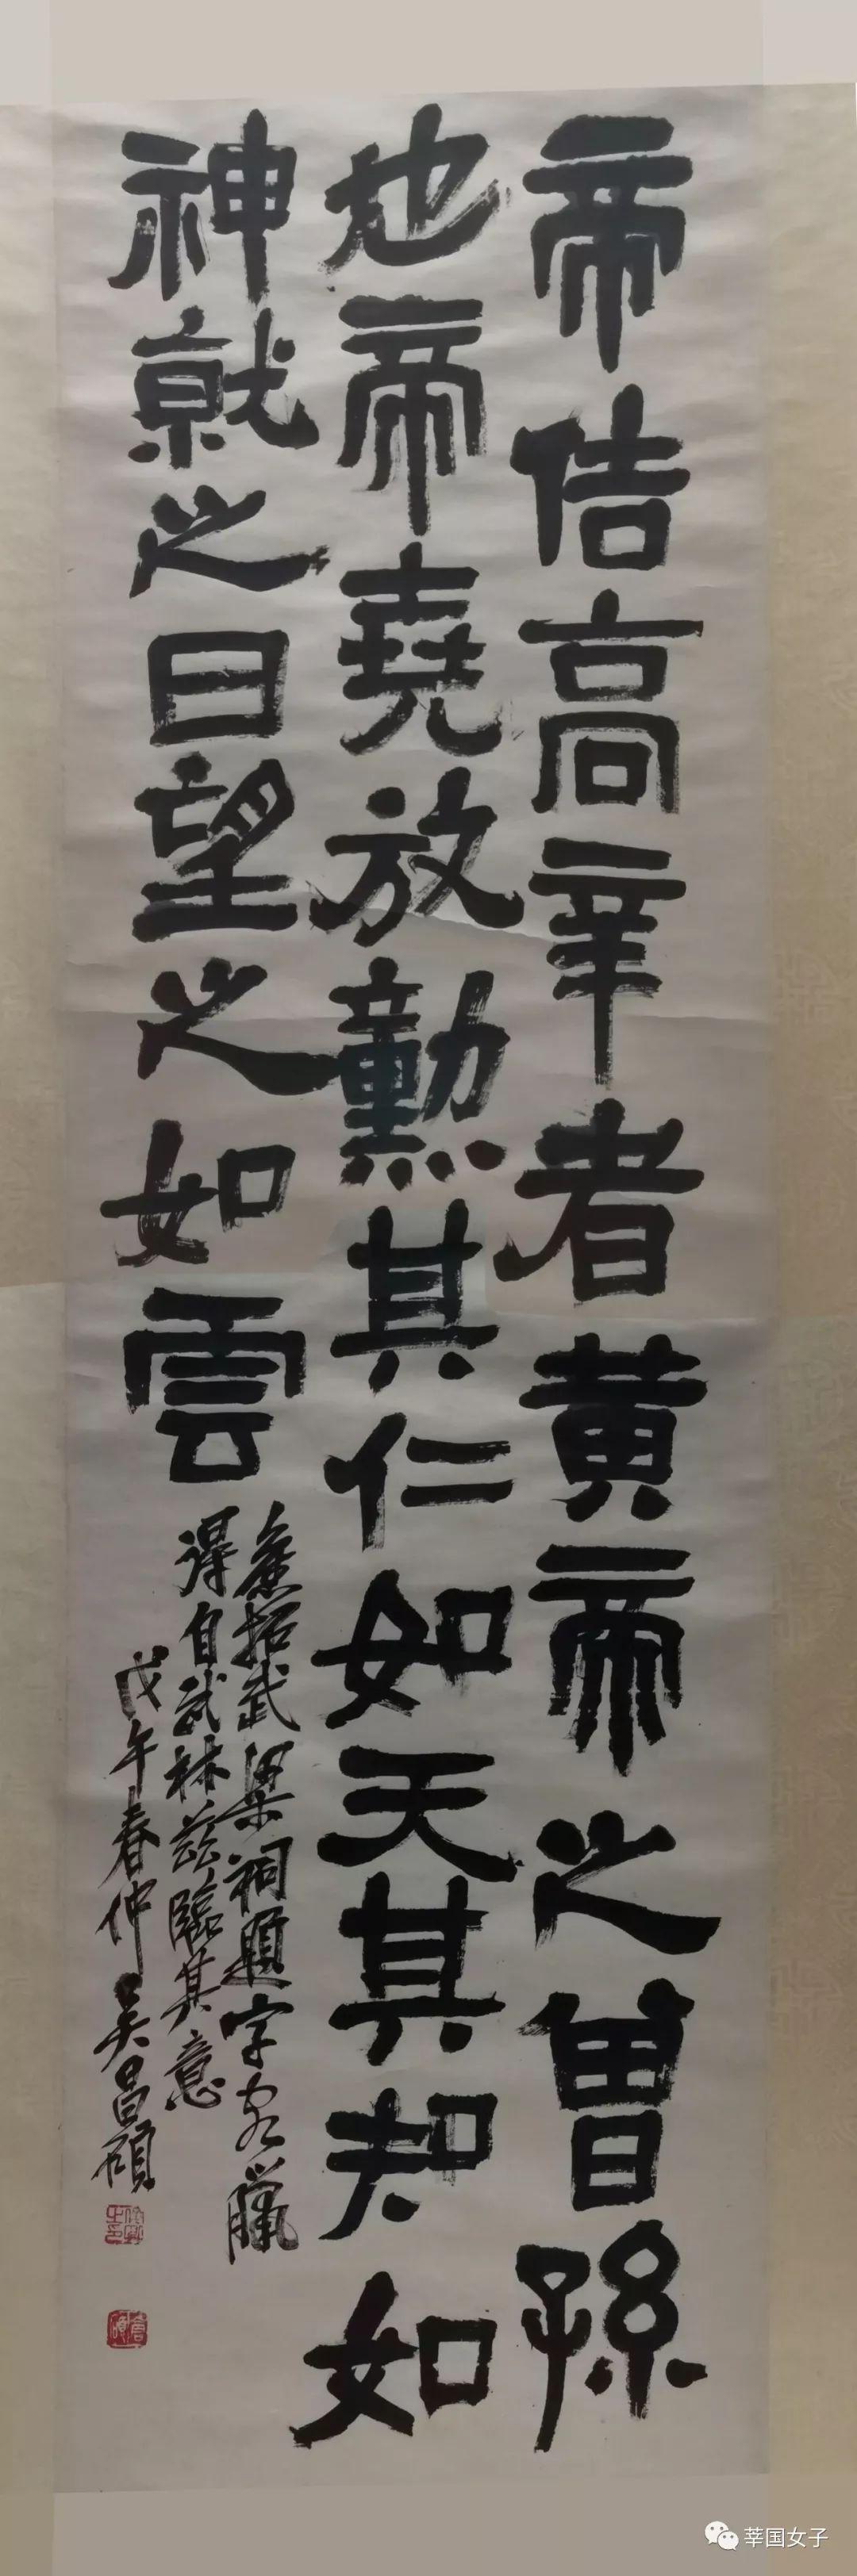 帝佶高辛者黄帝之曾孫
也帝堯放勳其仁如天其知如
神就之日望之如雲
拓武梁祠題字客臘
得自武林兹臨其意
戊午春仲吳昌碩
莘国女子